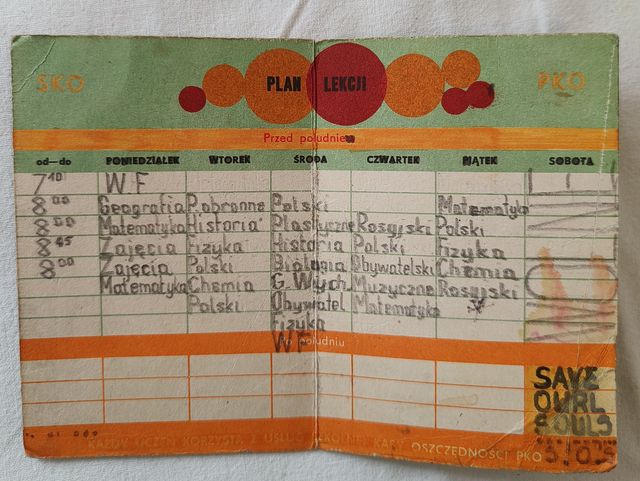 SKO PLAN LEKCJI PKO
Przed południem
od—do PONIEDZIAŁEK WTOREK ŚRODA CZWARTEK PIĄTEK SOBOTA
7 10 W.F
8 00 Geografia P.obronne Polski Matematyka
8 00 Matematyka Historia Plastyczne Rosyjski Polski
8 45 Zajęcia Fizyka Historia Polski Fizyka
8 00 Zajęcia Polski Biologia Obywatelski Chemia
Matematyka Chemia G.Wych Muzyczne Rosyjski
Polski Obywatel Matematyka
Fizyka
Po południu
WF
SAVE
OURL
SOULS
S.O.S
KAŻDY UCZEŃ KORZYSTA Z USŁUG SZKOLNEJ KASY OSZCZĘDNOŚCI PKO